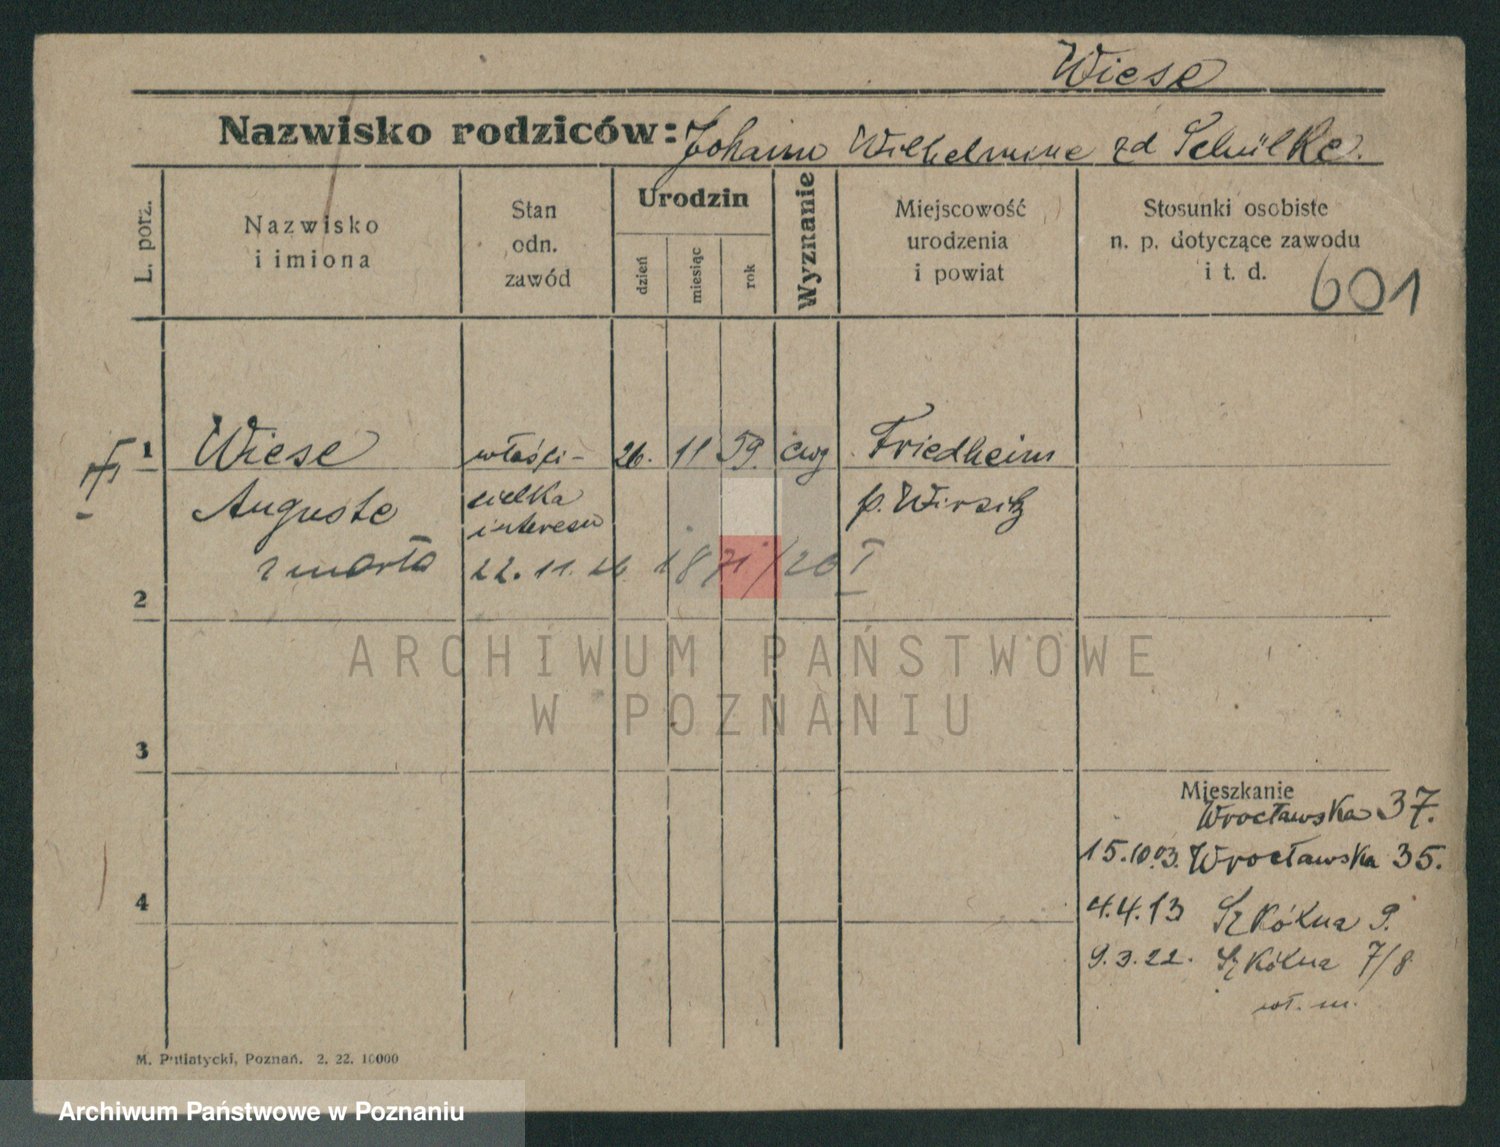 Wiese
Nazwisko rodziców: Johann Wilhelmine zd Schülke.
L. porz.
Nazwisko
i imiona
Stan
odn.
zawód
Urodzin
dzień
miesiąc
rok
Wyznanie
Miejscowość
urodzenia
i powiat
Stosunki osobiste
n. p. dotyczące zawodu
i t. d.
601
1
Wiese
właści-
26. 11 59. ewg
Friedheim
Auguste
cielka
interesu
p. Wirsitz
zmarła
22. 11. 26 1871/26 I
2
3
4
ARCHIWUM PAŃSTWOWE
W POZNANIU
Mieszkanie
Wrocławska 37.
15.10.03. Wrocławska 35.
4.4.13 Szkólna 9.
9.3.22. Szkólna 7/8
wł. m.
M. Putiatycki, Poznań. 2. 22. 10000
Archiwum Państwowe w Poznaniu